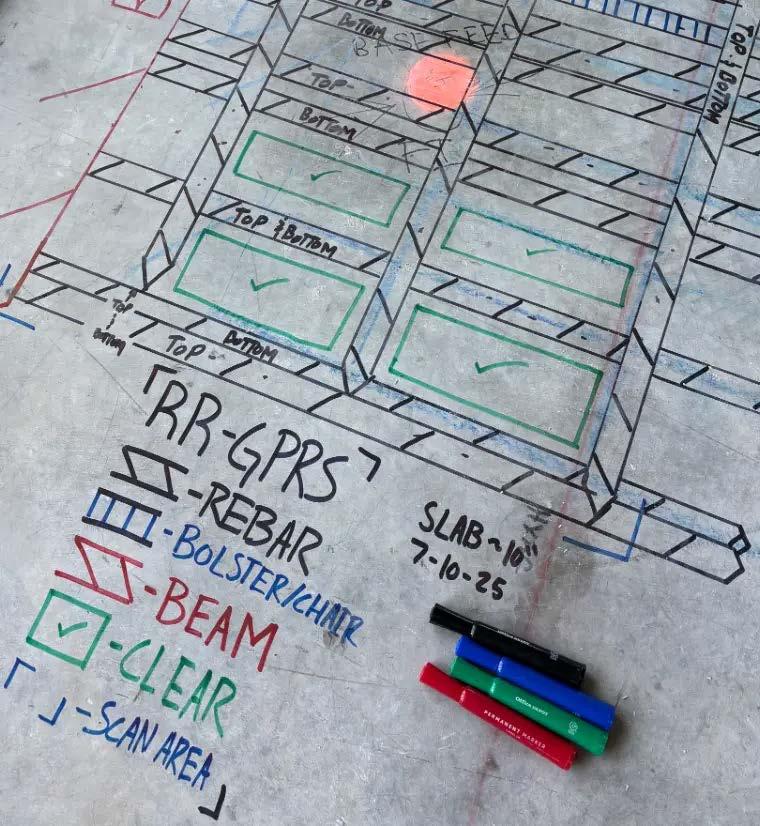 TOP
BOTTOM
BASE FEED
TOP & BOTTOM
TOP
BOTTOM
TOP & BOTTOM
TOP
BOTTOM
BOTTOM
TOP
RR-GPRS
-REBAR
-BOLSTER/CHAIR
-BEAM
-CLEAR
-SCAN AREA
SLAB ~10"
7-10-25
PERMANENT MARKER